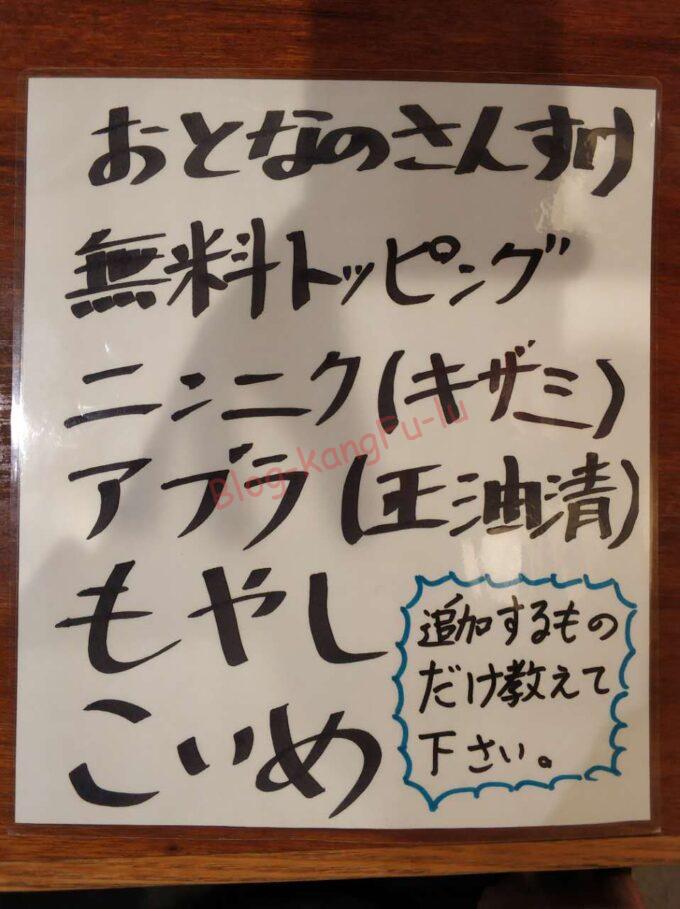 おとなのさんすけ
無料トッピング
ニンニク(キザミ)
アブラ(王油清)
もやし
こいめ
追加するもの
だけ教えて
下さい。
Blog-KangFu-lu